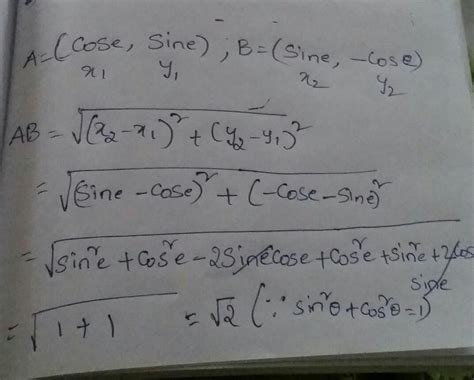 A = (Cose, Sine) ; B = (Sine, -Cose)
x₁ y₁ x₂ y₂
AB = √(x₂-x₁)² + (y₂-y₁)²
= √(Sine - Cose)² + (-Cose - Sine)²
= √Sin²e + Cos²e - 2Sine Cose + Cos²e + Sin²e + 2Cos
Sine
= √1 + 1 = √2 (∵ Sin²θ + Cos²θ = 1)